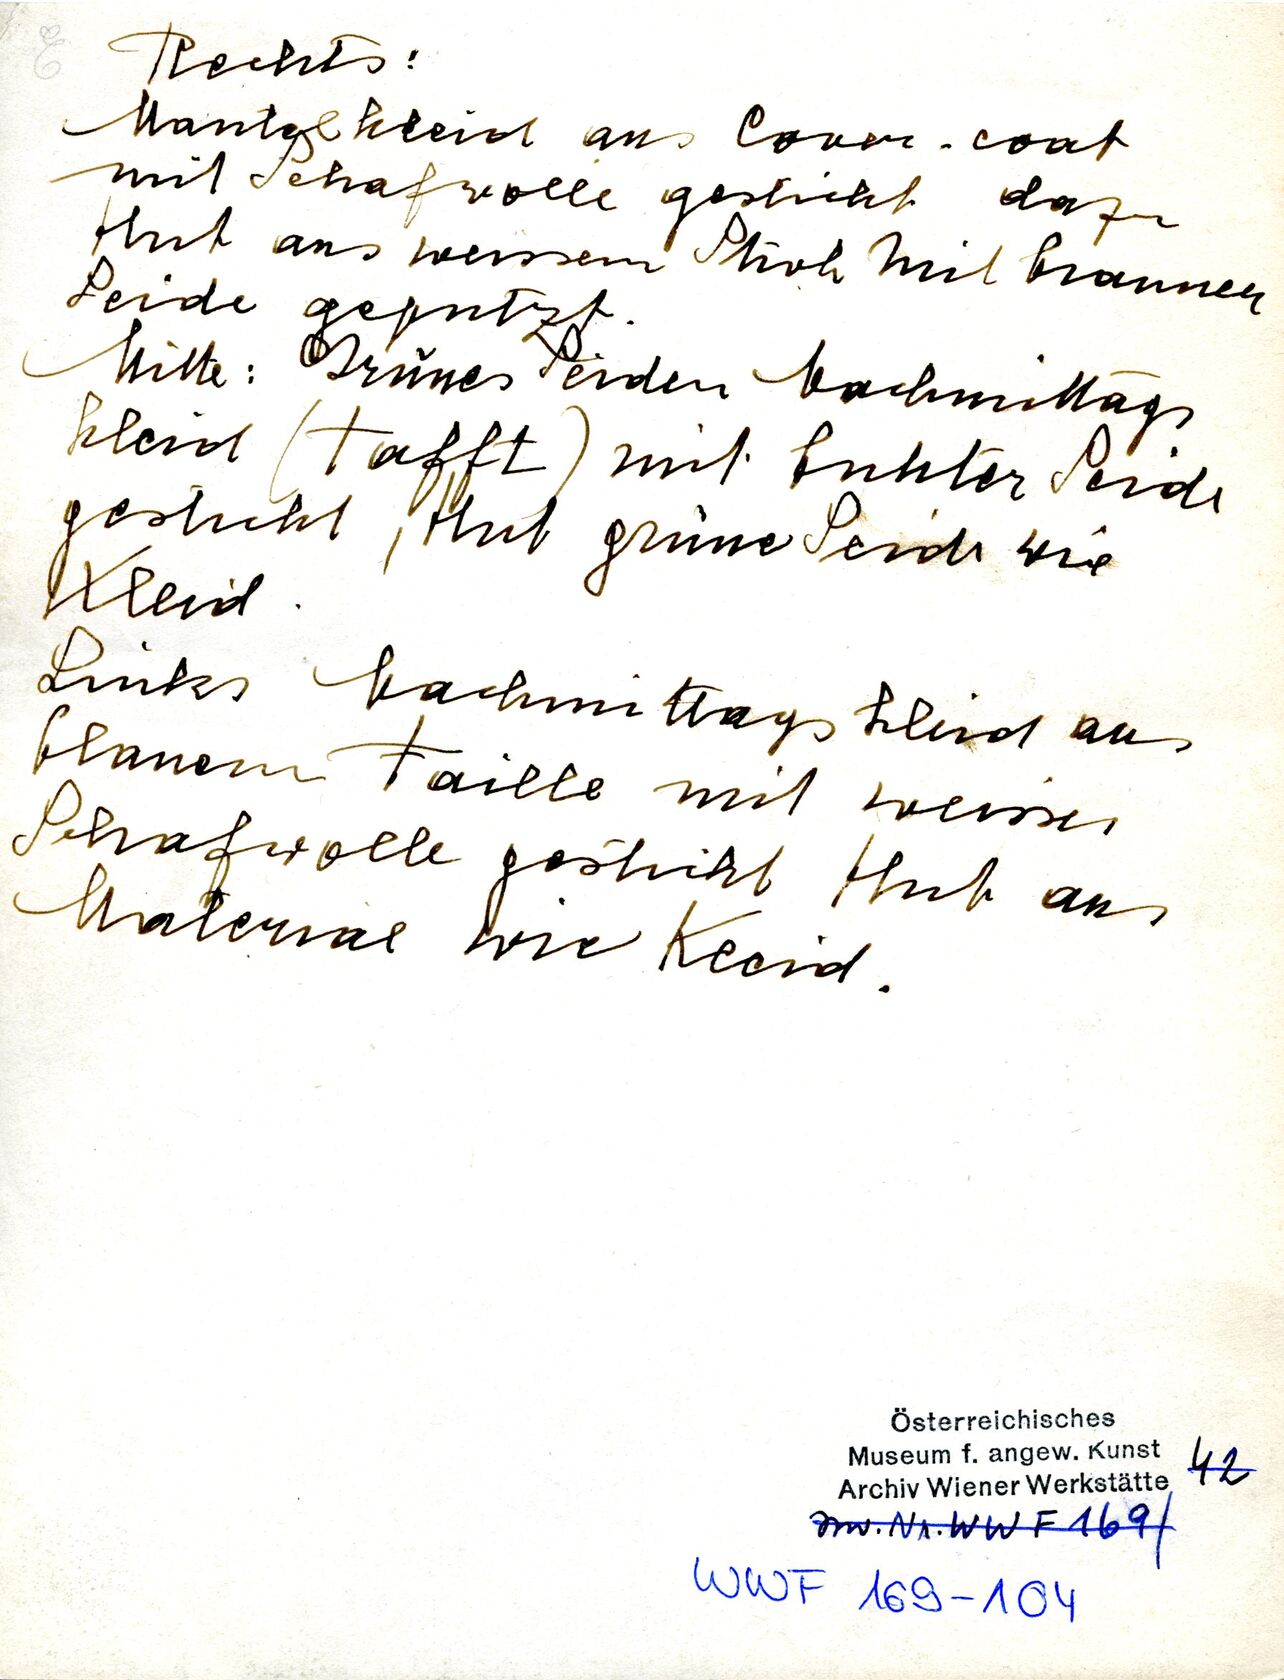 Rechts:
Mantelkleid aus Cover-coat
mit Schafwolle gestickt dazu
Hut aus weissem Stroh mit brauner
Seide geputzt.
Mitte: Grünes Seiden Nachmittags
kleid (Tafft) mit bunter Seide
gestickt, Hut grüne Seide wie
Kleid.
Links Nachmittagskleid aus
blauem Taille mit weisser
Schafwolle gestickt Hut aus
Material wie Kleid.
Österreichisches
Museum f. angew. Kunst
Archiv Wiener Werkstätte 42
Inv. Nr. WWF 169/
WWF 169-104